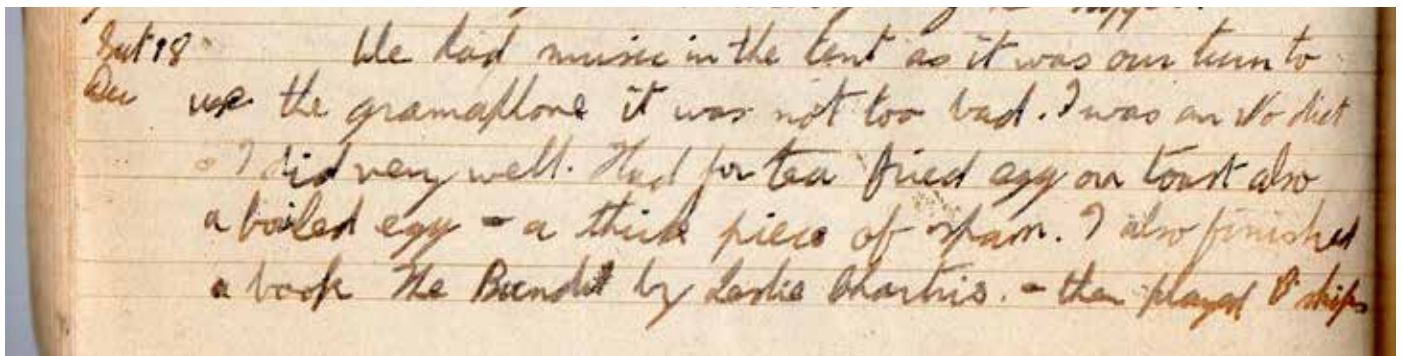 Sat 18 We had music in the tent as it was our turn to
Dec use the gramaphone it was not too bad. I was on No diet
- I did very well. Had for tea fried egg on toast also
a boiled egg - a thick piece of spam. I also finished
a book The Bandit by Leslie Charteris. - then played B ships